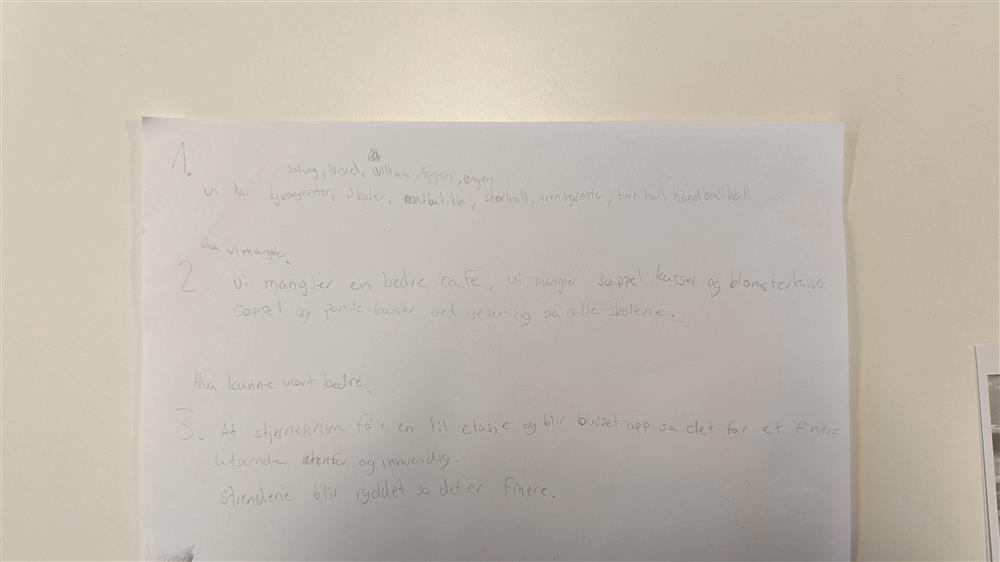 1.
solveig, Nord, William, Aggen, øyen
vi har kjøpesenter, skoler, matbutikka, storhall, trenigsenter, turnhall handballhall
Hva vi mangle.
2. vi mangler en bedre cafe, vi mangler søppel kasser og blomsterkasser
søppel og pante kasser ved veien og på alle skolene.
Hva kunne vært bedre.
3. At stjernesentra får en til etasje og blir pusset opp så det får et finere
utsende utenfor og innvendig.
strendene blir ryddet så det er finere.